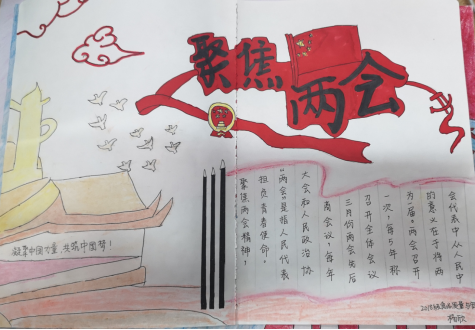 聚焦
两会
凝聚中国力量，共筑中国梦！
聚焦两会精神，
担负青春使命，
“两会”是指人民代表
大会和人民政治协
商会议，每年
三月份两会先后
召开全体会议
一次，每5年称
为一届。两会召开
的意义在于将两
会代表中从人民中
2018级食品质量与